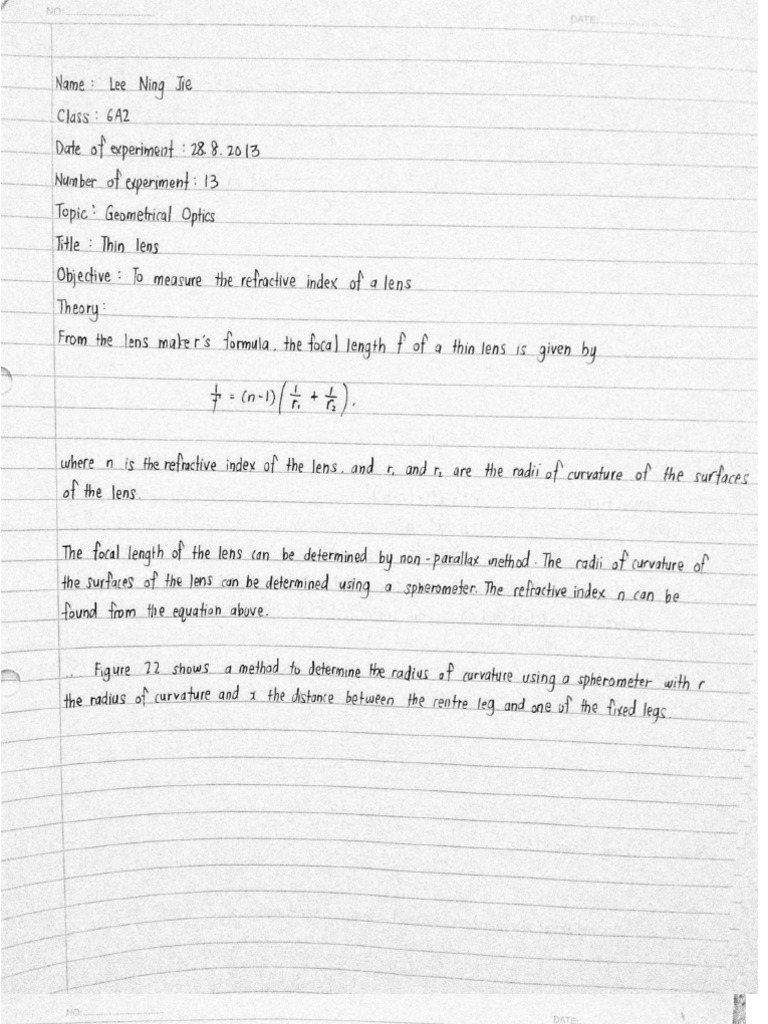 NO:
DATE:
Name : Lee Ning Jie
Class : 6A2
Date of experiment : 28.8.2013
Number of experiment : 13
Topic : Geometrical Optics
Title : Thin lens
Objective : To measure the refractive index of a lens
Theory :
From the lens maker's formula, the focal length f of a thin lens is given by
1/f = (n-1)(1/r₁ + 1/r₂),
where n is the refractive index of the lens, and r₁ and r₂ are the radii of curvature of the surfaces
of the lens.
The focal length of the lens can be determined by non-parallax method. The radii of curvature of
the surfaces of the lens can be determined using a spherometer. The refractive index n can be
found from the equation above.
Figure 22 shows a method to determine the radius of curvature using a spherometer with r
the radius of curvature and x the distance between the centre leg and one of the fixed legs.
NO:
DATE: